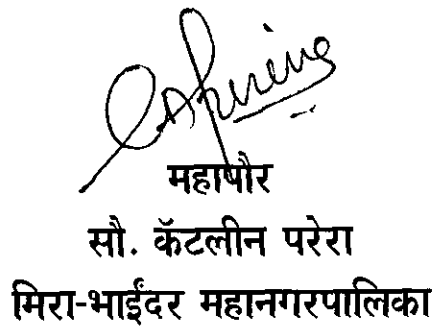 महापौर
सौ. कॅटलीन परेरा
मिरा-भाईंदर महानगरपालिका